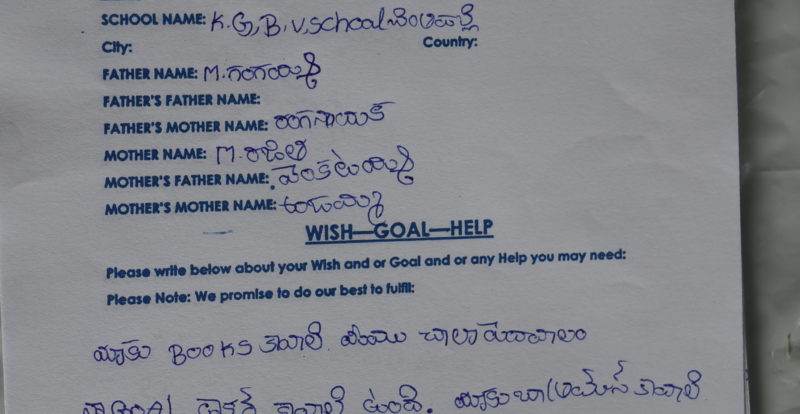 SCHOOL NAME: K.G.B.V.school
City: Country:
FATHER NAME: M.గంగయ్య
FATHER'S FATHER NAME:
FATHER'S MOTHER NAME: రంగనాయక
MOTHER NAME: M.రజిత
MOTHER'S FATHER NAME: వెంకటయ్య
MOTHER'S MOTHER NAME:
WISH—GOAL—HELP
Please write below about your Wish and or Goal and or any Help you may need:
Please Note: We promise to do our best to fulfil:
మాకు BOOKS కావాలి మేము చాలా చదవాలం
నా GOAL డాక్టర్ కావాలి ఉంది. మాకు కావాలి